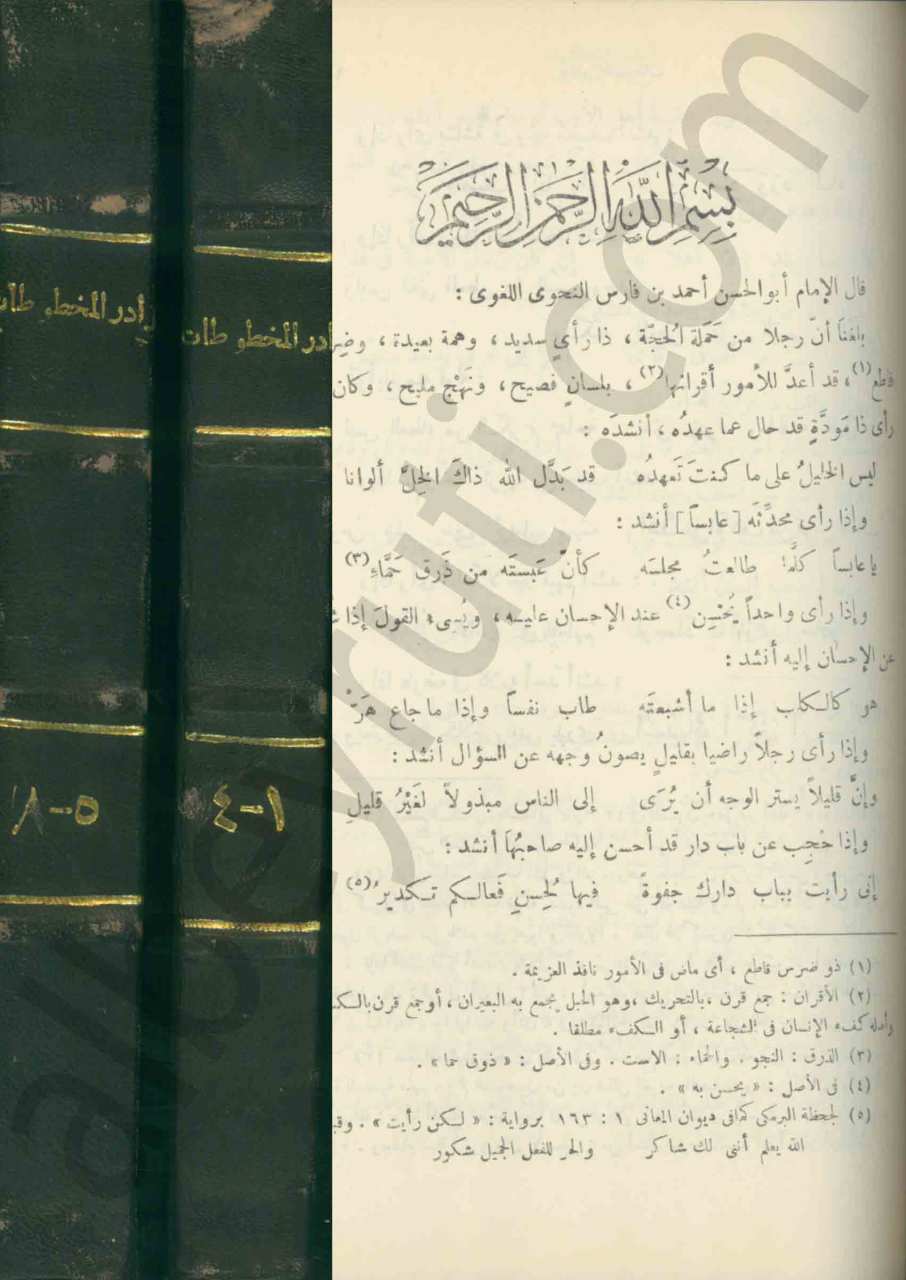 بِسْمِ اللَّهِ الرَّحْمَنِ الرَّحِيمِ
قال الإمام أبو الحسن أحمد بن فارس النحوى اللغوى :
بلغنا أنّ رجلا من حَمَلة الحجّة ، ذا رأي سديد ، وهمة بعيدة ، وضِر
قاطع(١)، قد أعدَّ للأمور أقرانها(٢) ، بلسانٍ فصيح ، ونَهْج مليح ، وكان
رأى ذا مَودَّةٍ قد حال عما عهدُه ، أنشدَه :
ليس الخليلُ على ما كنتَ تَعهدُه قد بَدَّل الله ذاكَ الخِلَّ ألوانا
وإذا رأى محدِّثَه [عابساً] أنشد :
يا عابساً كلَّما طالعتُ مجلسَه كأنَّ عَبستَه من ذَرق حَمَّاءِ(٣)
وإذا رأى واحداً يُحْسِن(٤) عند الإحسان عليه ، ويُسِىء القولَ إذا
عن الإحسان إليه أنشد :
هو كالكلب إذا ما أشبعتَه طاب نفساً وإذا ما جاع هَرّ
وإذا رأى رجلاً راضيا بقليلٍ يصونُ وجهه عن السؤال أنشد :
وإنَّ قليلاً يستر الوجه أن يُرَى إلى الناس مبذولاً لَغَيْرُ قليلِ
وإذا حُجِب عن باب دار قد أحسن إليه صاحبُها أنشد :
إنى رأيت بباب دارك جفوةً فيها لحِسنِ فَعالكم تكديرُ(٥)
(١) ذو ضرس قاطع ، أى ماض فى الأمور نافذ العزيمة .
(٢) الأقران : جمع قرن ، بالتحريك ، وهو الحبل يجمع به البعيران ، أو جمع قرن بالكس
كفء الإنسان فى الشجاعة ، أو الكفء مطلقا .
(٣) الذرق : النجو . والحماء : الاست . وفى الأصل : « ذوق حما » .
(٤) فى الأصل : « يحسن به » .
(٥) لجحظة البرمكى كما فى ديوان المعانى ١ : ١٦٣ برواية : « لكن رأيت » . وقب
الله يعلم أننى لك شاكر والحر للفعل الجميل شكور
ادر المخطوطات
ادر المخطوطات
١-٤
٥-٨
alkeyruti.com